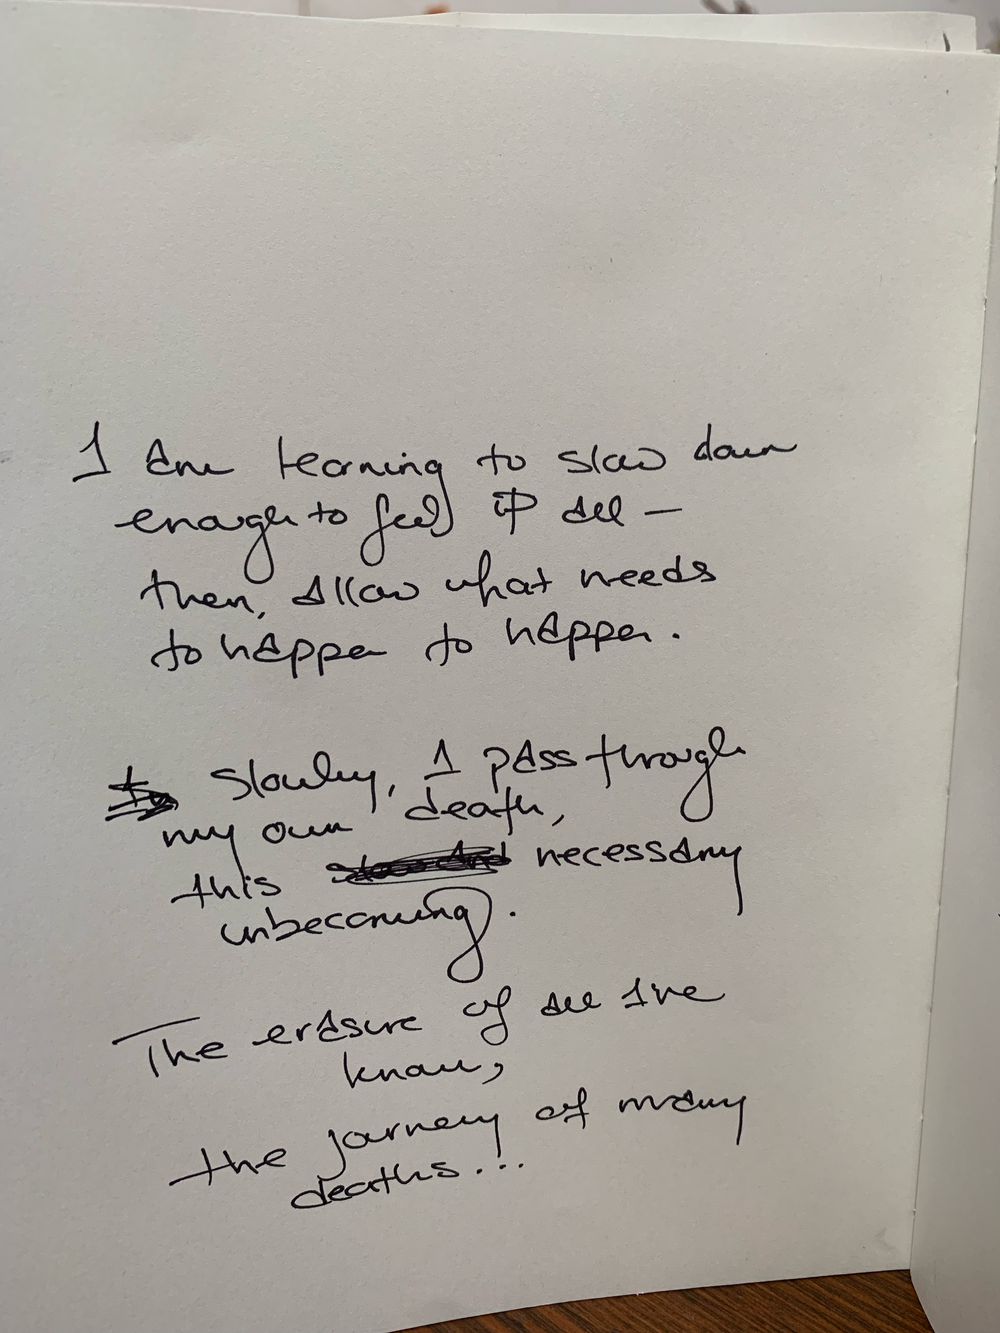 I am learning to slow down
enough to feel it all —
then, allow what needs
to happen to happen.
Slowly, I pass through
my own death,
this necessary
unbecoming.
The erasure of all I've
known,
the journey of many
deaths...